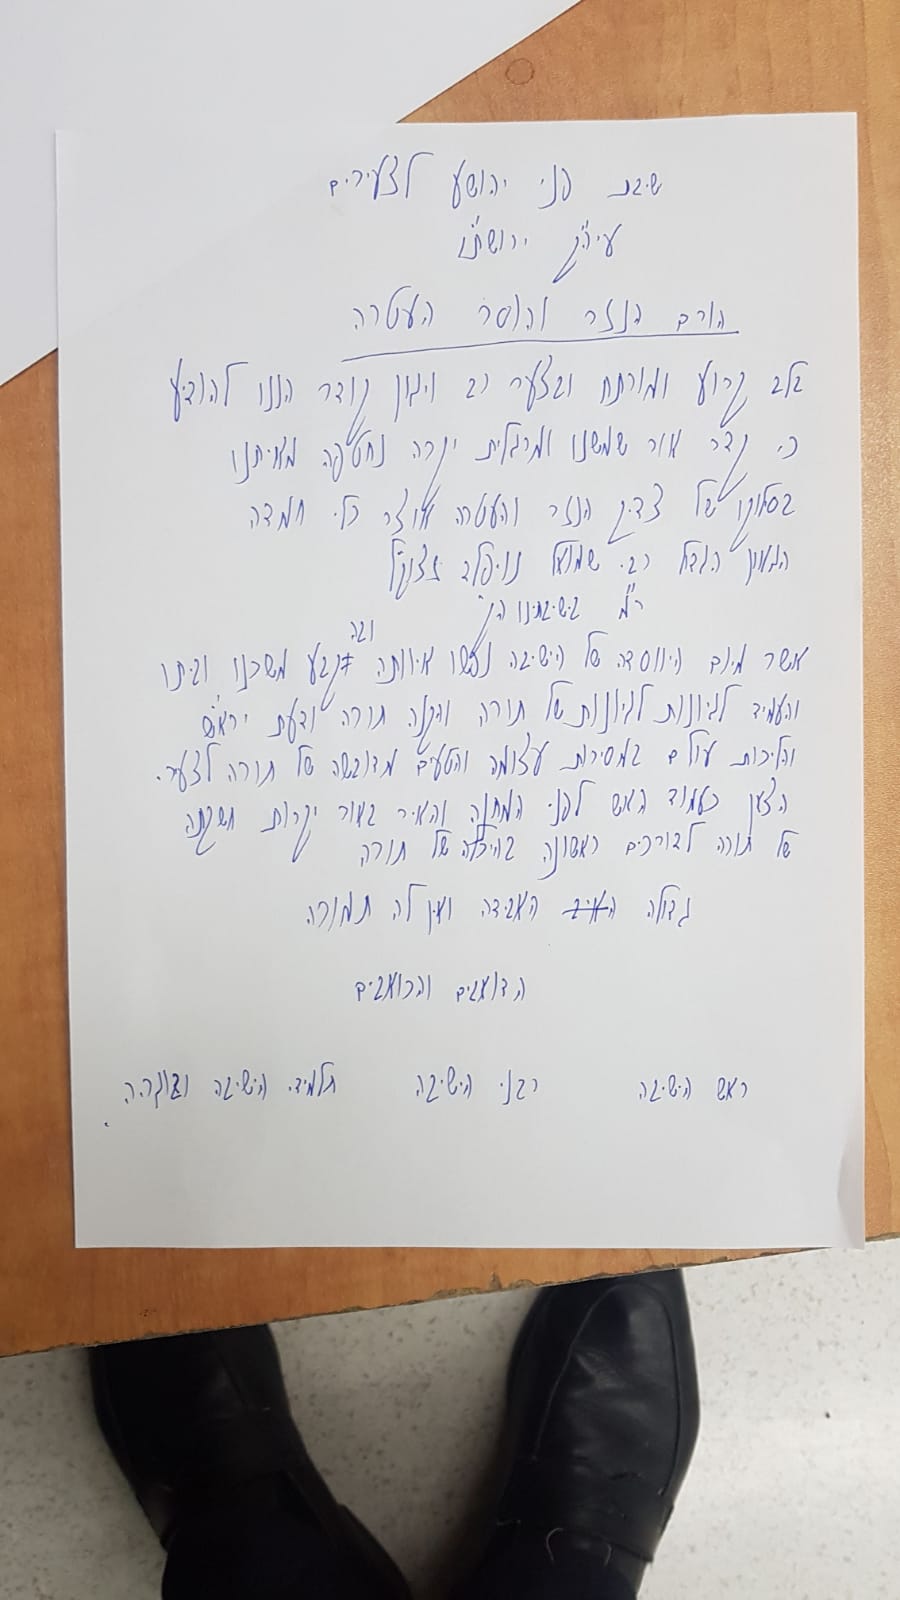 ישיבת פני יהושע לצעירים
עיה"ק ירושת"ו
הורם הנזר והוסר העטרה
בלב קרוע ומורתח ובצער רב ויגון קודר הננו להודיע
כי קדר אור שמשנו ומרגלית יקרה נחטפה מאיתנו
בסלוקו של צדיק הנזר והעטרה אוצר כלי חמדה
הגאון הגדול רבי שמואל נויפלד זצוק"ל
ר"מ בישיבתינו הק'
אשר מיום היווסדה של הישיבה נפשו איוותה ובה קבע משכנו וביתו
והעמיד לגיונות לגיונות של תורה והקנה תורה ודעת יראי"ש
והליכות עולם במסירות עצומה והטעים מדובשה של תורה לצעירי
הצען כעמוד האש לפני המחנה והאיר באור יקרות חשקתה
של תורה לדורכים ראשונה בהיכלה של תורה
גדולה האבידה ואין לה תמורה
הדואבים והכואבים
ראש הישיבה רבני הישיבה תלמידי הישיבה ובוגריה